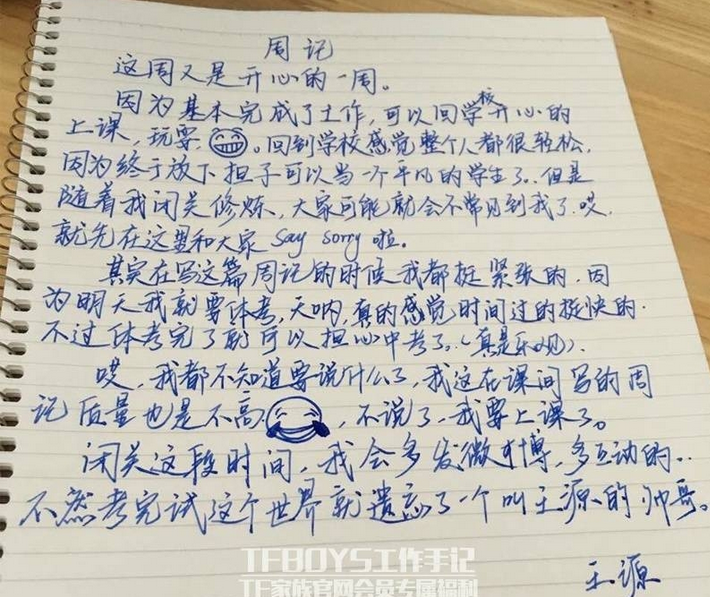 周记
这周又是开心的一周。
因为基本完成了工作,可以回学校开心的
上课,玩耍。回到学校感觉整个人都很轻松,
因为终于放下担子可以当一个平凡的学生了.但是
随着我闭关修炼,大家可能就会不常见到我了.哎,
就先在这里和大家say sorry啦。
其实在写这篇周记的时候我都挺紧张的.因
为明天我就要体考,天呐,真的感觉时间过的挺快的.
不过体考完了就可以担心中考了.(真是乐观).
哎,我都不知道要说什么了,我这在课间写的周
记质量也是不高,不说了,我要上课了。
闭关这段时间,我会多发微博,多互动的..
不然考完试这个世界就遗忘了一个叫王源的帅哥。
王源
TFBOYS工作手记
TF家族官网会员专属福利